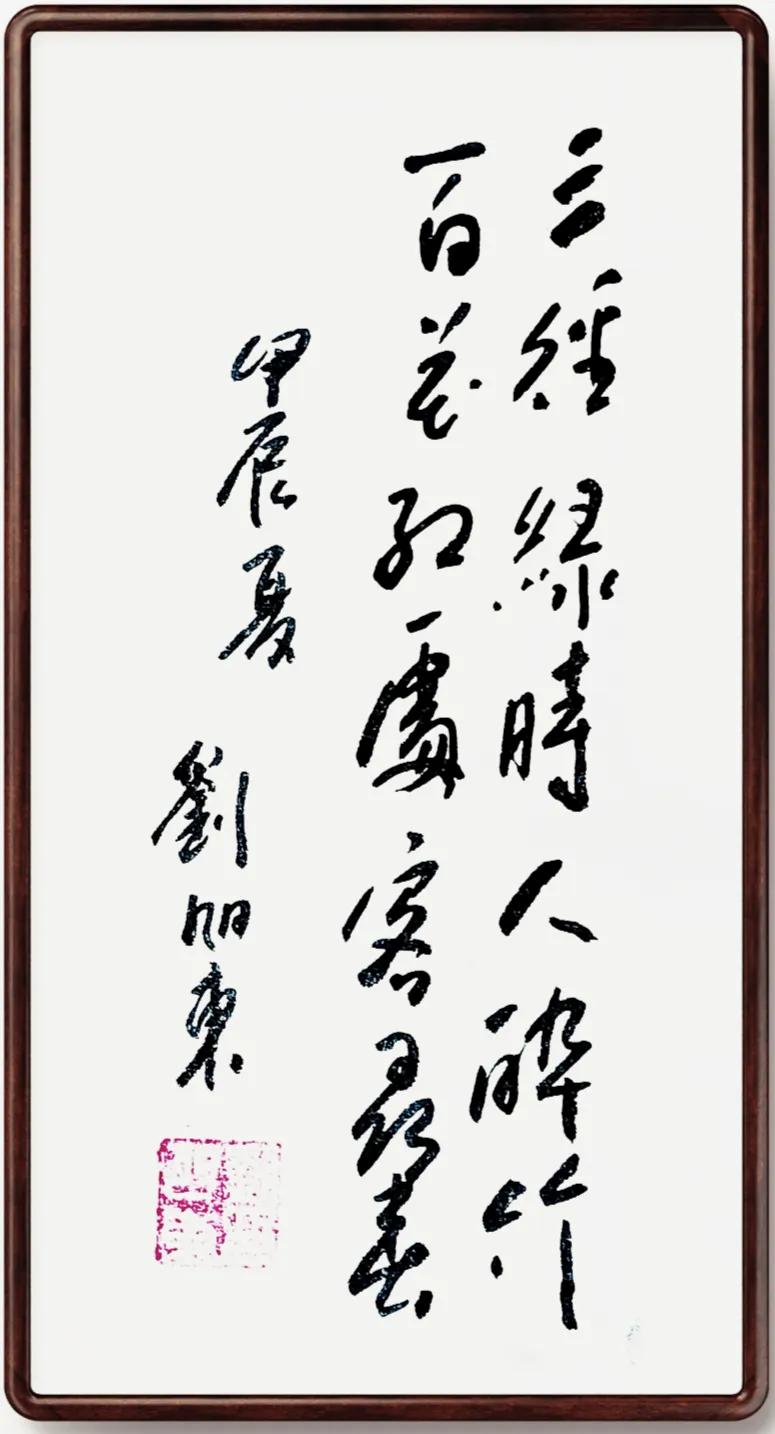 三徑綠時人醉竹
百花紅處客尋春
甲辰夏
劉旭東